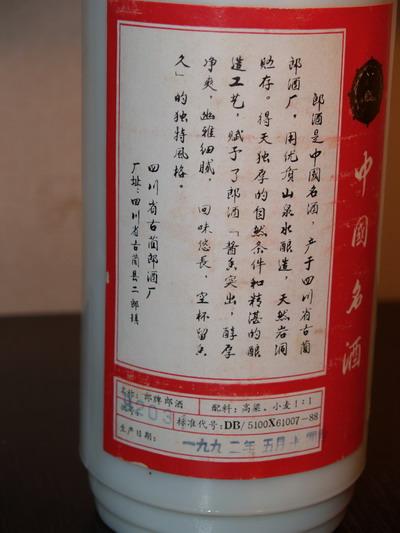 郎酒是中國名酒，产于四川省古藺
郎酒厂，用优质山泉水酿造，天然岩洞
贮存。得天独厚的自然条件和精湛的酿
造工艺，赋予了郎酒「醬香突出，醇厚
净爽，幽雅细腻，回味悠長，空杯留香
久」的独特風格。
四川省古藺郎酒厂
厂址：四川省古藺县二郎鎮
中國名酒
名称：郎牌郎酒
配料：高粱、小麦1:1
标准代号：DB/5100X61007-88
生产日期：
一九九二年五月十